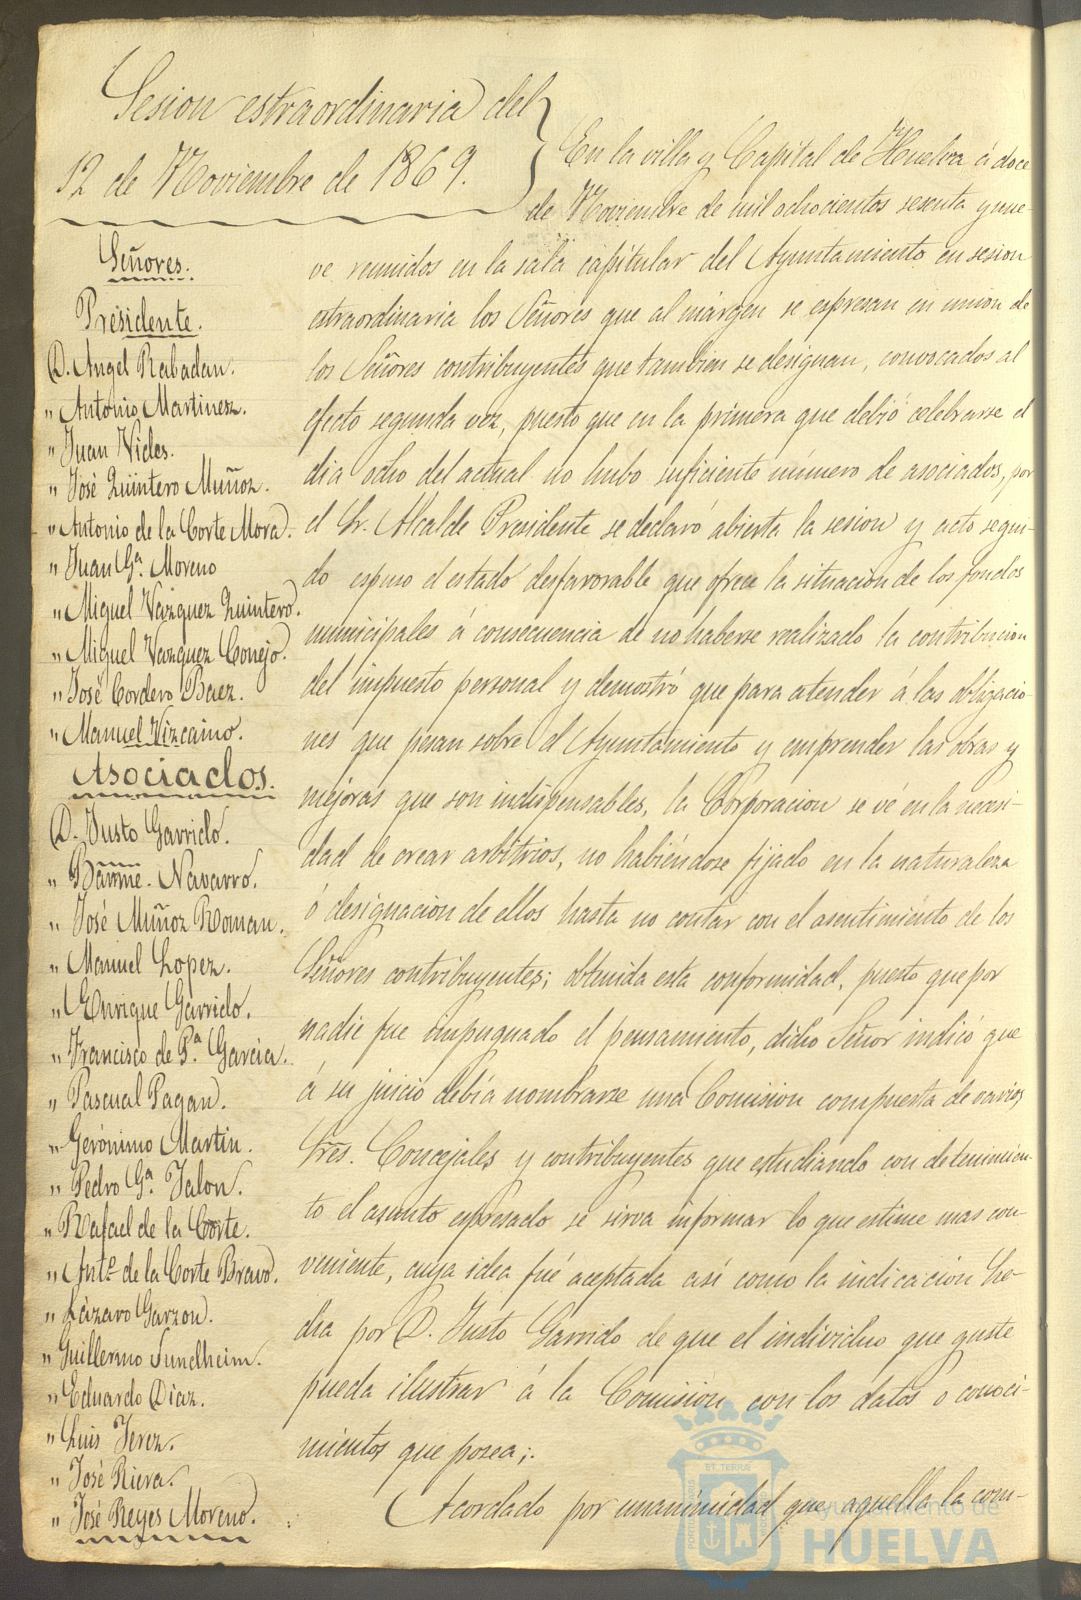 Sesion estraordinaria del
12 de Noviembre de 1869.
Señores.
Presidente.
D. Angel Rabadan.
" Antonio Martinez.
" Juan Vides.
" José Quintero Muñoz.
" Antonio de la Corte Mora.
" Juan Gª. Moreno
" Miguel Vazquez Quintero.
" Miguel Vazquez Conejo.
" José Cordero Baez.
" Manuel Vizcaino.
Asociados.
D. Justo Garrido.
" Barme. Navarro.
" José Muñoz Roman.
" Manuel Lopez.
" Enrique Garrido.
" Francisco de Pª. Garcia.
" Pascual Pagan.
" Gerónimo Martin.
" Pedro Gª. Jalon.
" Rafael de la Corte.
" Antº. de la Corte Bravo.
" Lázaro Garzon.
" Guillermo Sundheim.
" Eduardo Diaz.
" Luis Jerez.
" José Riera.
" José Reyes Moreno.
En la villa y Capital de Huelva á doce
de Noviembre de mil ochocientos sesenta y nue-
ve reunidos en la sala capitular del Ayuntamiento en sesion
estraordinaria los Señores que al márgen se espresan en union de
los Señores contribuyentes que tambien se designan, convocados al
efecto segunda vez, puesto que en la primera que debió celebrarse el
dia ocho del actual no hubo suficiente número de asociados, por
el Sr. Alcalde Presidente se declaró abierta la sesion y acto segui-
do espuso el estado desfavorable que ofrece la situacion de los fondos
municipales á consecuencia de no haberse realizado la contribucion
del impuesto personal y demostró que para atender á las obligacio
nes que pesan sobre el Ayuntamiento y emprender las obras y
mejoras que son indispensables, la Corporacion se vé en la necesi-
dad de crear arbitrios, no habiéndose fijado en la naturaleza
ó designacion de ellos hasta no contar con el asentimiento de los
Señores contribuyentes; obtenida esta conformidad, puesto que por
nadie fue impugnado el pensamiento, dicho Señor indicó que
á su juicio debia nombrarse una Comision compuesta de varios
Sres. Concejales y contribuyentes que estudiando con detenimien-
to el asunto espresado se sirva informar lo que estime mas con-
veniente, cuya idea fué aceptada así como la indicacion he-
cha por D. Justo Garrido de que el individuo que guste
pueda ilustrar á la Comision con los datos o conoci-
mientos que posea;.
Acordado por unanimidad que aquella la com-
ET TERRÆ
Ayuntamiento de
HUELVA